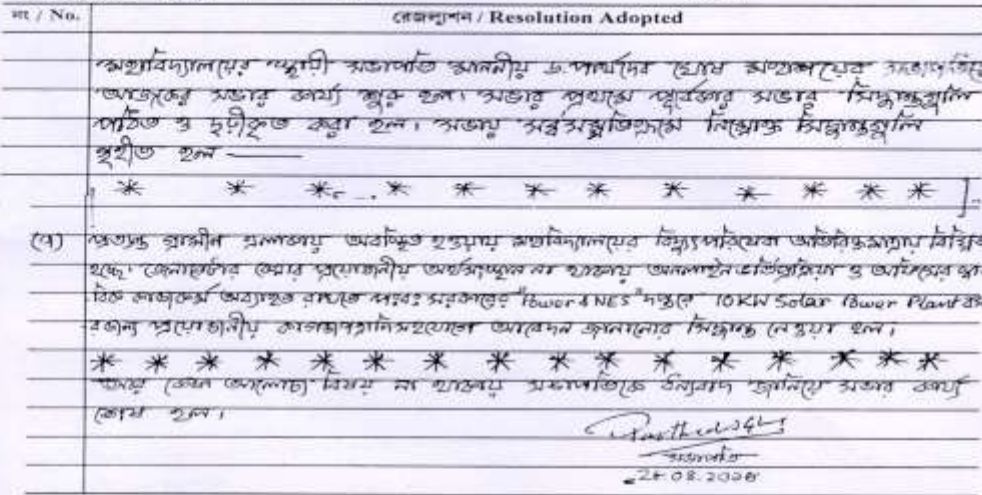 নং / No. রেজল্যুশন / Resolution Adopted
মহাবিদ্যালয়ের স্থায়ী সভাপতি মাননীয় ড. পার্থদেব ঘোষ মহাশয়ের সভাপতিত্বে
আজকের সভার কার্য্য শুরু হল। সভার প্রথমে পূর্বেকার সভার সিদ্ধান্তগুলি
পঠিত ও দৃঢ়ীকৃত করা হল। সভায় সর্বসম্মতিক্রমে নিম্নোক্ত সিদ্ধান্তগুলি
গৃহীত হল —
* * * ... * * * * * * * * * ]
(৭) প্রত্যন্ত গ্রামীন এলাকায় অবস্থিত হওয়ায় মহাবিদ্যালয়ের বিদ্যুৎপরিষেবা অতিরিক্তমাত্রায় বিঘ্নিত
হচ্ছে। জেনারেটার কেনার প্রয়োজনীয় অর্থসংস্থান না থাকায় অনলাইন ভর্তিপ্রক্রিয়া ও অফিসের স্বাভা
বিক কাজকর্ম অব্যাহত রাখতে পঃবঃ সরকারের "Power & NES" দপ্তরে 10KW Solar Power Plant বসা
বার জন্য প্রয়োজনীয় কাগজপত্রাদিসহযোগে আবেদন জানানোর সিদ্ধান্ত নেওয়া হল।
* * * * * * * * * * * * * * * *
আর কোন আলোচ্য বিষয় না থাকায় সভাপতিকে ধন্যবাদ জানিয়ে সভার কার্য্য
শেষ হল।
সভাপতি